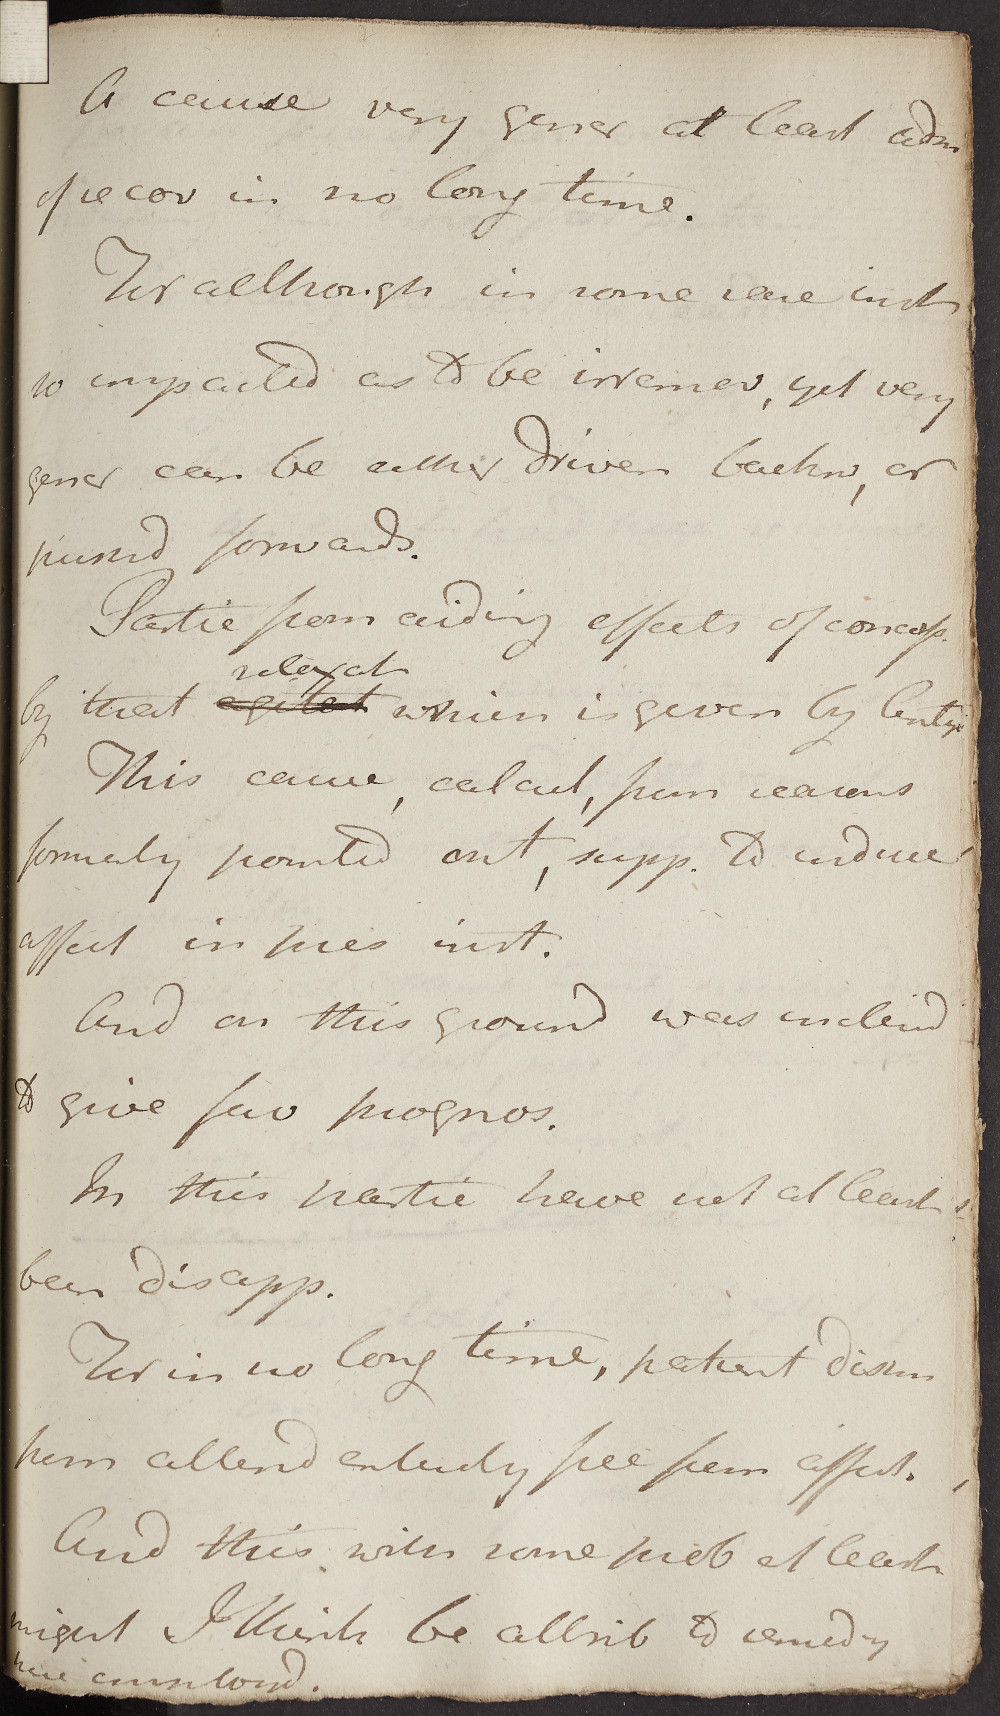 A cause very gener at least adm
of recov in no long time.
For although in some rare inst
so impacted as to be irremov, yet very
gener can be either driven backw, or
pushd forwards.
Partic from aiding effects of
by that relaxat agitat which is given by
This cause, calcul, from reasons
formerly pointed out, supp. to induce
affect in pres inst.
And on this ground was inclind
to give fav prognos.
In this partic have not at least
been disapp.
For in no long time, patient dism
from attend entirely free from affect.
And this with some prob at least
might I think be attrib to remedy
here employd.